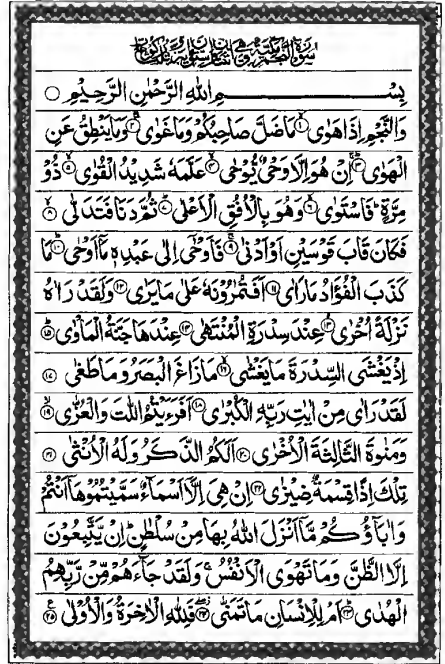 سُوْرَةُ النَّجْمِ مَكِّيَّةٌ
بِسْمِ اللهِ الرَّحْمٰنِ الرَّحِيْمِ ○
وَالنَّجْمِ اِذَا هَوٰى ۙ۱ مَا ضَلَّ صَاحِبُكُمْ وَمَا غَوٰى ۚ۲ وَمَا يَنْطِقُ عَنِ
الْهَوٰى ؕ۳ اِنْ هُوَ اِلَّا وَحْيٌ يُّوْحٰى ۙ۴ عَلَّمَهٗ شَدِيْدُ الْقُوٰى ۙ۵ ذُوْ
مِرَّةٍ ؕ فَاسْتَوٰى ۙ۶ وَهُوَ بِالْاُفُقِ الْاَعْلٰى ؕ۷ ثُمَّ دَنَا فَتَدَلّٰى ۙ۸
فَكَانَ قَابَ قَوْسَيْنِ اَوْ اَدْنٰى ۚ۹ فَاَوْحٰۤى اِلٰى عَبْدِهٖ مَاۤ اَوْحٰى ؕ۱۰ مَا
كَذَبَ الْفُؤَادُ مَا رَاٰى ۱۱ اَفَتُمٰرُوْنَهٗ عَلٰى مَا يَرٰى ۱۲ وَلَقَدْ رَاٰهُ
نَزْلَةً اُخْرٰى ۙ۱۳ عِنْدَ سِدْرَةِ الْمُنْتَهٰى ۱۴ عِنْدَهَا جَنَّةُ الْمَاْوٰى ؕ۱۵
اِذْ يَغْشَى السِّدْرَةَ مَا يَغْشٰى ۙ۱۶ مَا زَاغَ الْبَصَرُ وَمَا طَغٰى ۱۷
لَقَدْ رَاٰى مِنْ اٰيٰتِ رَبِّهِ الْكُبْرٰى ۱۸ اَفَرَءَيْتُمُ اللّٰتَ وَالْعُزّٰى ۙ۱۹
وَمَنٰوةَ الثَّالِثَةَ الْاُخْرٰى ۲۰ اَلَكُمُ الذَّكَرُ وَلَهُ الْاُنْثٰى ۲۱
تِلْكَ اِذًا قِسْمَةٌ ضِيْزٰى ۲۲ اِنْ هِيَ اِلَّاۤ اَسْمَآءٌ سَمَّيْتُمُوْهَاۤ اَنْتُمْ
وَاٰبَآؤُكُمْ مَّاۤ اَنْزَلَ اللهُ بِهَا مِنْ سُلْطٰنٍ ؕ اِنْ يَّتَّبِعُوْنَ
اِلَّا الظَّنَّ وَمَا تَهْوَى الْاَنْفُسُ ۚ وَلَقَدْ جَآءَهُمْ مِّنْ رَّبِّهِمُ
الْهُدٰى ؕ۲۳ اَمْ لِلْاِنْسَانِ مَا تَمَنّٰى ۖ۲۴ فَلِلّٰهِ الْاٰخِرَةُ وَالْاُوْلٰى ۲۵